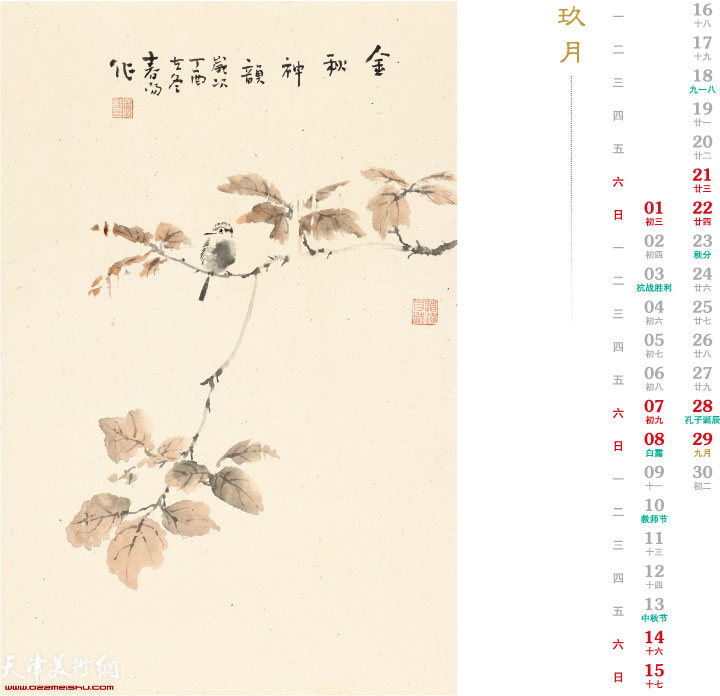 金秋神韻
歲次
丁酉
冬
春
作
玖月
一
二
三
四
五
六
日
一
二
三
四
五
六
日
一
二
三
四
五
六
日
01
初三
02
初四
03
抗战胜利
04
初六
05
初七
06
初八
07
初九
08
白露
09
十一
10
教师节
11
十三
12
十四
13
中秋节
14
十六
15
十七
16
十八
17
十九
18
九一八
19
廿一
20
廿二
21
廿三
22
廿四
23
秋分
24
廿六
25
廿七
26
廿八
27
廿九
28
孔子诞辰
29
九月
30
初二
天津美術網
www.022meishu.com